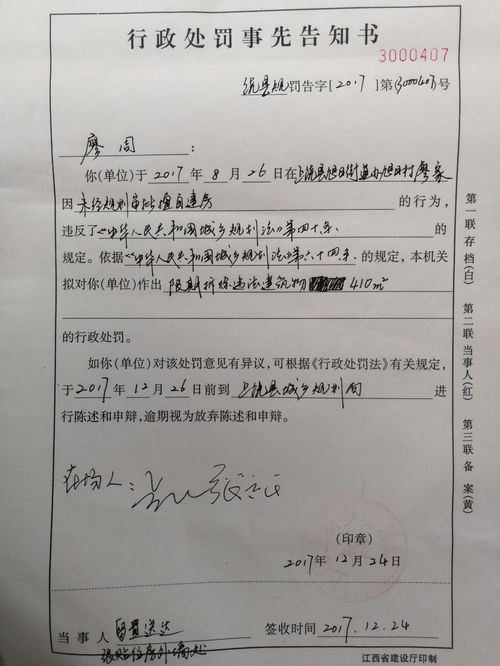 行政处罚事先告知书
3000407
饶县规罚告字[2017]第(3000407)号
廖闾:
你(单位)于2017年8月26日在上饶县旭日街道办旭日村廖家
因未经规划审批擅自建房的行为,
违反了《中华人民共和国城乡规划法》第四十条的
规定。依据《中华人民共和国城乡规划法》第六十四条的规定,本机关
拟对你(单位)作出限期拆除违法建筑物410m²
的行政处罚。
如你(单位)对该处罚意见有异议,可根据《行政处罚法》有关规定,
于2017年12月26日前到上饶县城乡规划局进
行陈述和申辩,逾期视为放弃陈述和申辩。
在场人:
(印章)
2017年12月24日
当事人 留置送达 签收时间 2017.12.24
张贴住房外墙处
江西省建设厅印制
第一联存档(白) 第二联当事人(红) 第三联备案(黄)